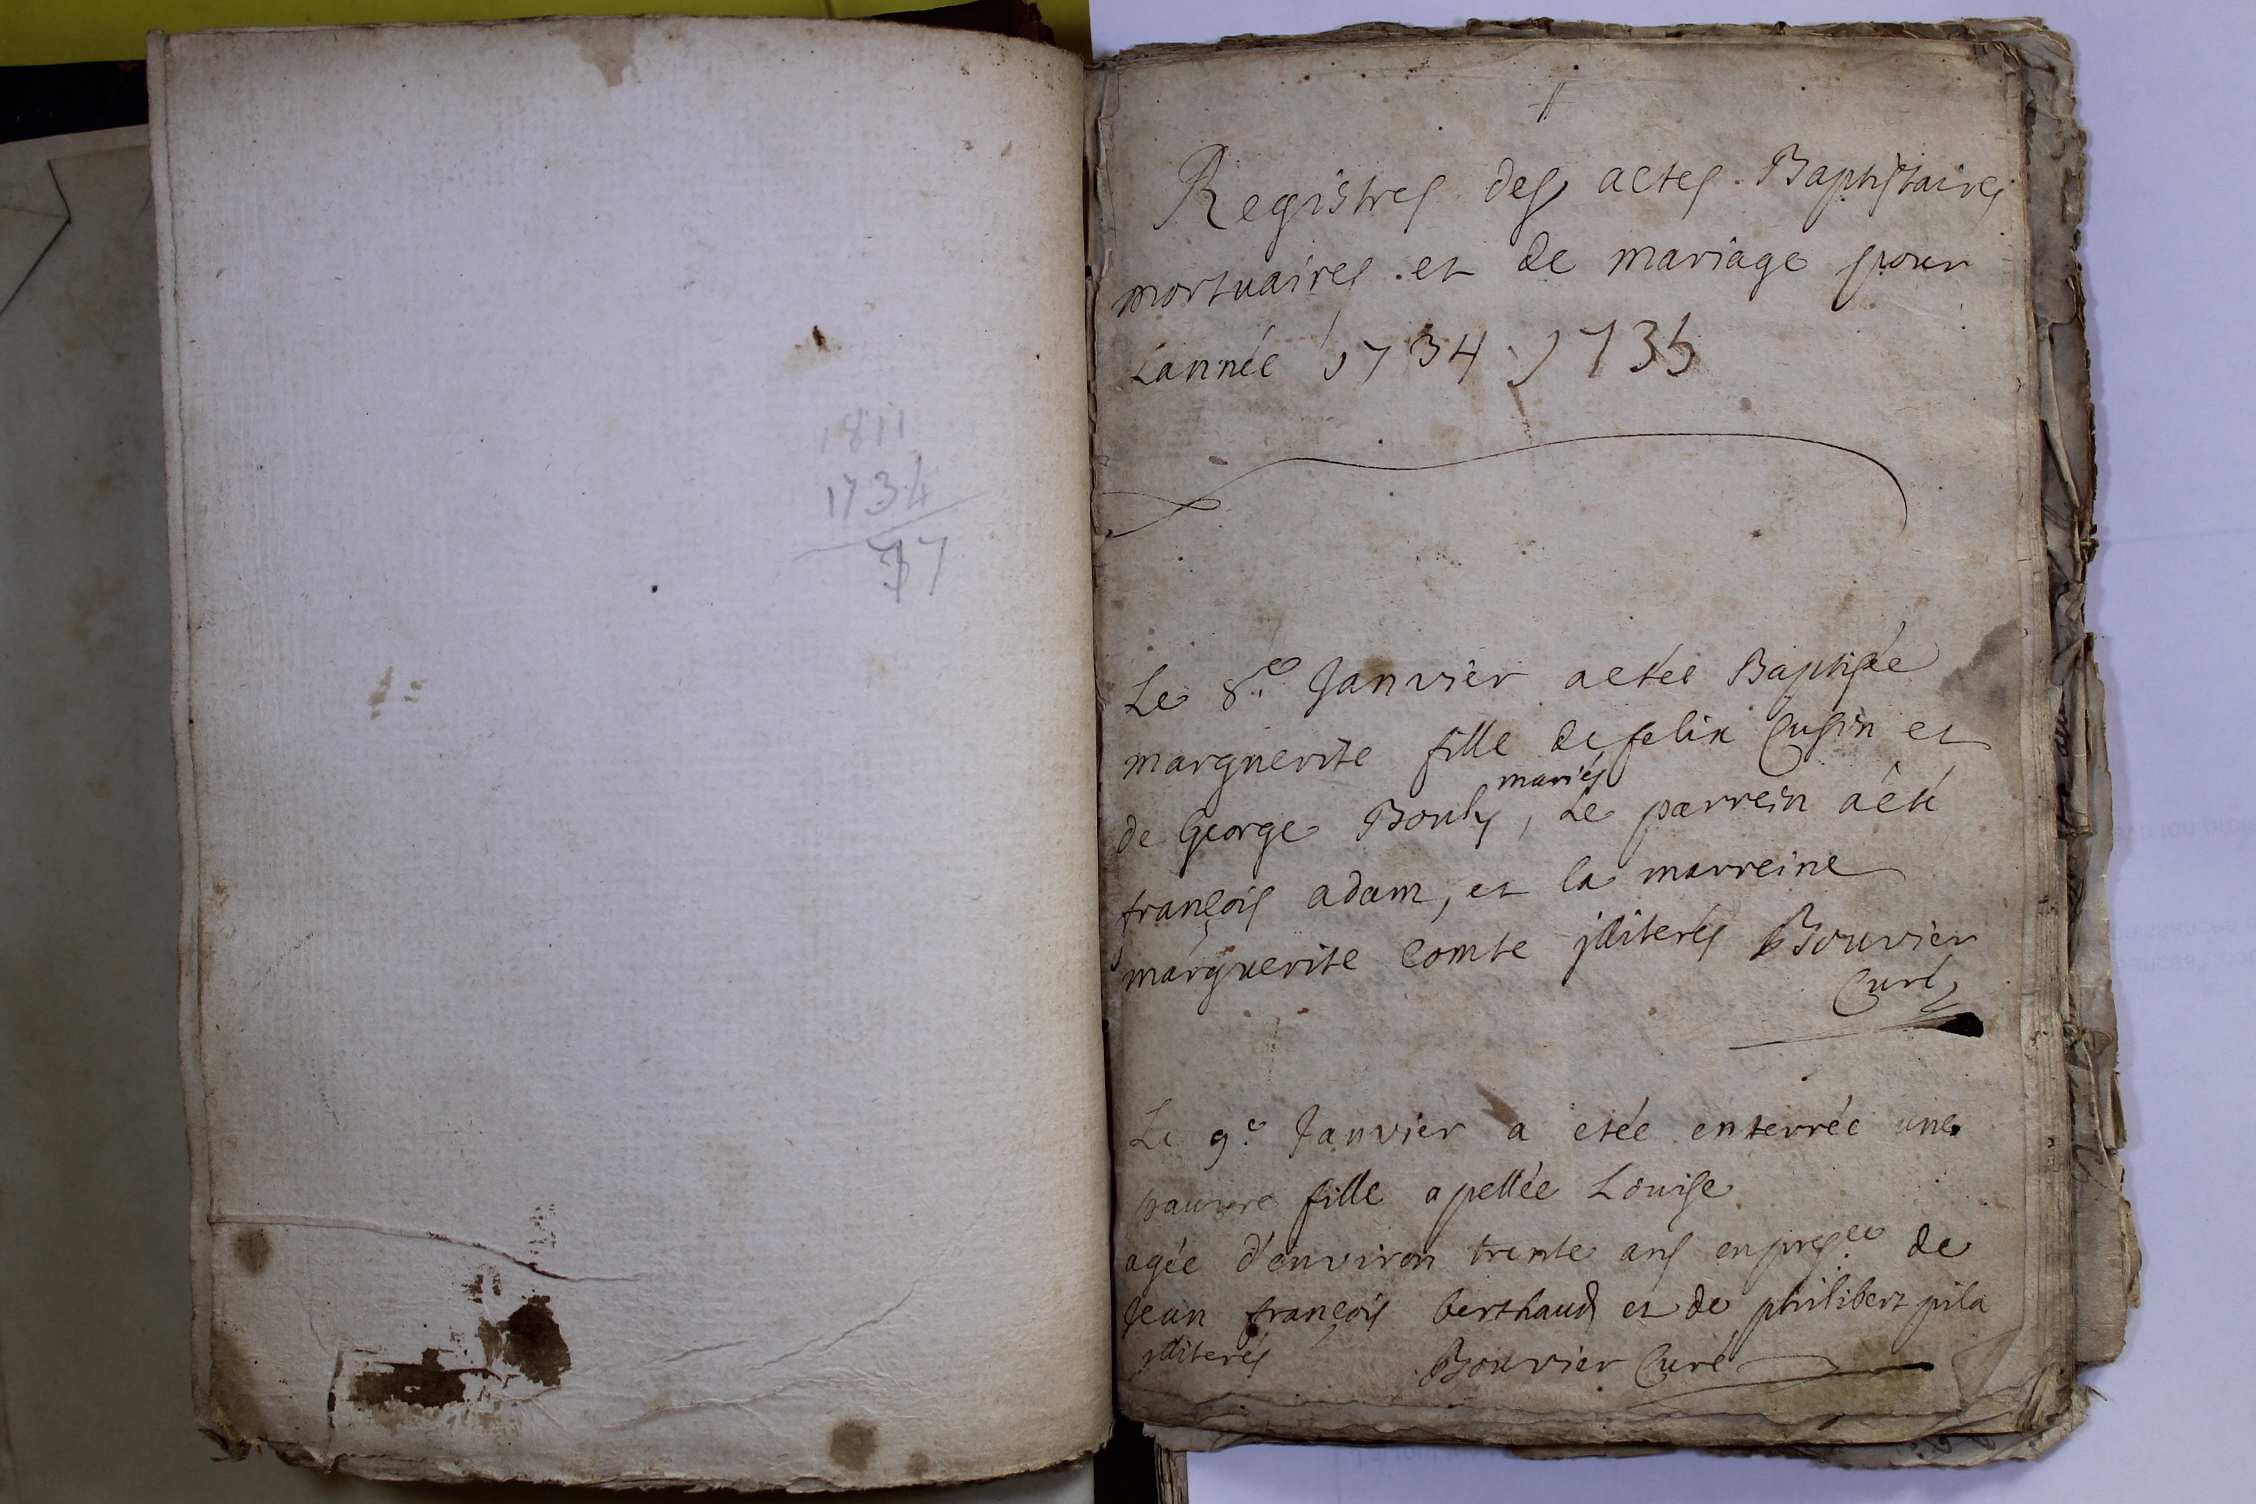 1811
1734
37
Registres des actes Baptistaires
mortuaires et de mariage pour
L'année 1734. 1735
Le 8.e Janvier aetée Baptisée
marguerite fille de felix Cusin et
mariés
de George Bouly, Le parrein àêté
françois adam, et la marreine
marguerite Comte jlliterés Bouvier
Curé
Le 9.e Janvier a etée enterrée une
pauvre fille apellée Louise
agée d'environ trente ans en pres.ce de
Jean françois berthaud et de philibert pila
jlliterés Bouvier Curé